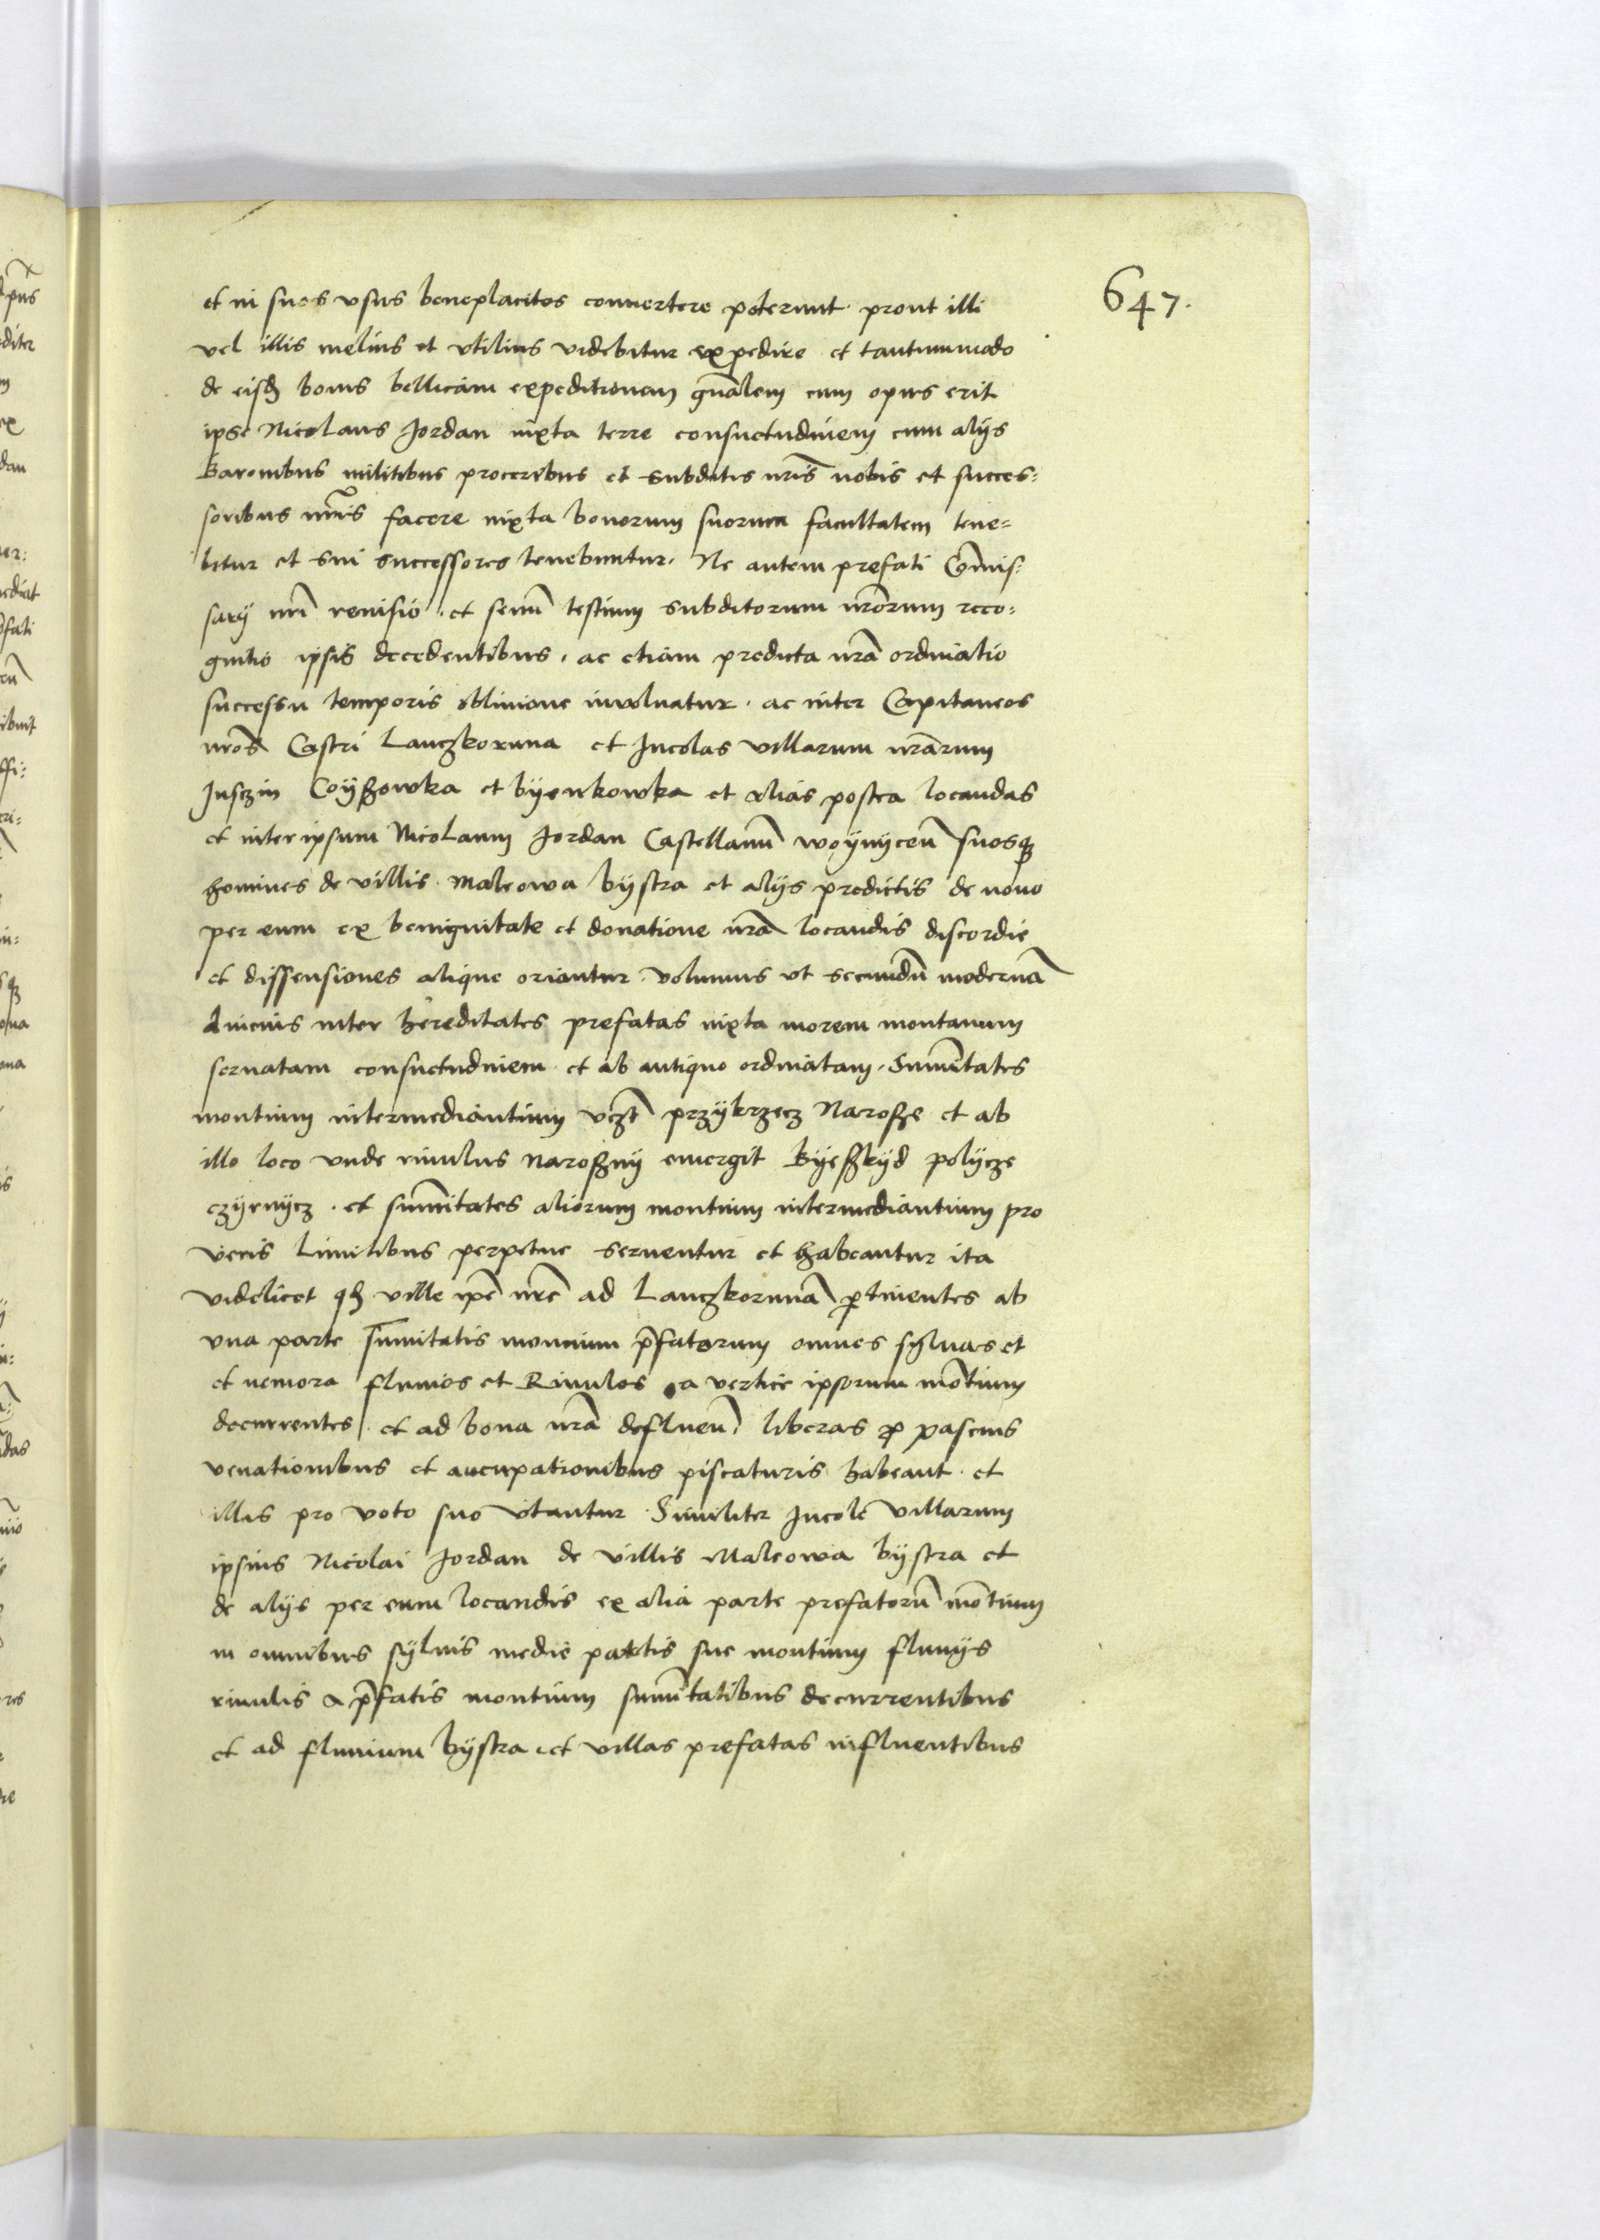 647.
et in suos vsus beneplacitos conuertere poterunt. prout illi
vel illis melius et vtilius videbitur expedire et tantummodo
de eisd bonis bellicam expeditionem gn̄alem cum opus erit
ipse Nicolaus Jordan iuxta terre consuetudinem cum alijs
Baronibus militibus proceribus et subditis nr̄is nobis et succes:
soribus nr̄is facere iuxta bonorum suorum facultatem tene=
bitur et sui successores tenebuntur. Ne autem prefati Com̄is:
sarij nr̄i reuisio. et senū testium subditorum nr̄orum reco:
gnitio ipsis decedentibus. ac etiam predicta nr̄a ordinatio
successu temporis obliuione inuoluatur. ac inter Capitaneos
nr̄os Castri Lanczkoruna et Incolas villarum nr̄arum
Jusczin Coyszowka et byenkowka et alias postea locandas
et inter ipsum Nicolaum Jordan Castellanū woynyceñ suosq
homines de villis. Maleowa bystra et alijs predictis de nouo
per eum ex benignitate et donatione nr̄a locandis discordie
et dissensiones alique oriantur. volumus vt secundū modernā
Aniemis inter hereditates prefatas iuxta morem montanum
seruatam consuetudinem. et ab antiquo ordinatam. Sum̄itates
montium intermediantium vczt przykrzecz Narosze et ab
illo loco vnde riuulus naroszny emergit Byeszkyd polycze
czyrnycz. et sum̄itates aliorum montium intermediantium pro
veris limitibus perpetue seruentur et habeantur ita
videlicet qd ville ip̄e nr̄e ad Lanczkorunā ptinentes ab
vna parte sum̄itatis montium p̄fatorum omnes syluas et
et nemora fluuios et Riuulos a vertice ipsorum mōtium
decurrentes. et ad bona nr̄a defluen̄. liberas p pascuis
venationibus et aucupationibus piscaturis habeant. et
illis pro voto suo vtantur. Similiter Incole villarum
ipsius Nicolai Jordan de villis Maleowa bystra et
de alijs per eum locandis ex alia parte prefatorū mōtium
in omnibus syluis medie partis sue montium fluuijs
riuulis a p̄fatis montium sum̄itatibus decurrentibus
et ad fluuium bystra et villas prefatas influentibus